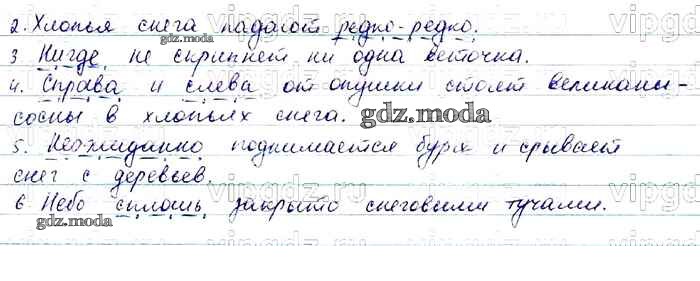 2. Хлопья снега падают редко-редко.
3 Нигде не скрипнет ни одна веточка.
4. Справа и слева от опушки стоят великаны-
сосны в хлопьях снега. gdz.moda
5. Неожиданно поднимается буря и срывает
снег с деревьев.
6 Небо сплошь закрыто снеговыми тучами.
gdz.moda